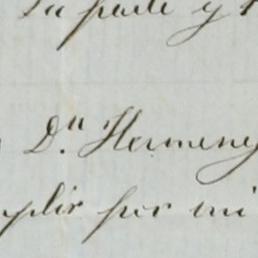 su parte y
Dn. Hermeneg
plir por mi